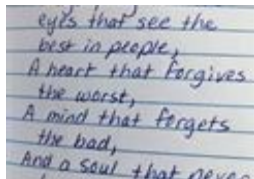 eyes that see the
best in people,
A heart that forgives
the worst,
A mind that forgets
the bad,
And a soul that never